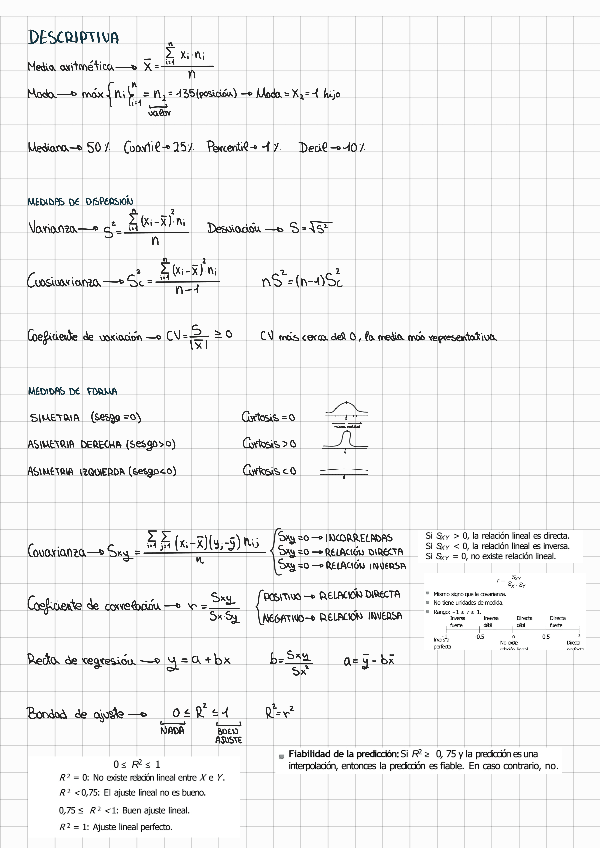 DESCRIPTIVA
Media aritmética → x̄ = Σ(i=1, n) xᵢ·nᵢ / n
Moda → máx {nᵢ}ⁿᵢ₌₁ = n₂ = 135 (posición) → Moda = X₂ = 1 hijo
valor
Mediana → 50% Cuartil → 25% Percentil → 1% Decil → 10%
MEDIDAS DE DISPERSIÓN
Varianza → S² = Σ(i=1, n) (xᵢ - x̄)²·nᵢ / n Desviación → S = √S²
Cuasivarianza → Sc² = Σ(i=1, n) (xᵢ - x̄)² nᵢ / n-1 nS² = (n-1)Sc²
Coeficiente de variación → CV = S / |x̄| ≥ 0 CV más cerca del 0, la media más representativa
MEDIDAS DE FORMA
SIMETRIA (sesgo = 0) Curtosis = 0
ASIMETRIA DERECHA (sesgo > 0) Curtosis > 0
ASIMETRIA IZQUIERDA (sesgo < 0) Curtosis < 0
Covarianza → Sxy = Σ Σ (xᵢ - x̄)(yⱼ - ȳ) nᵢⱼ / n
Sxy = 0 → INCORRELADAS
Sxy = 0 → RELACIÓN DIRECTA
Sxy = 0 → RELACIÓN INVERSA
Si Sxy > 0, la relación lineal es directa.
Si Sxy < 0, la relación lineal es inversa.
Si Sxy = 0, no existe relación lineal.
Coeficiente de correlación → r = Sxy / Sx·Sy
POSITIVO → RELACIÓN DIRECTA
NEGATIVO → RELACIÓN INVERSA
Mismo signo que la covarianza.
No tiene unidades de medida.
Rango: -1 ≤ r ≤ 1.
Inversa Inversa Directa Directa
fuerte débil débil fuerte
0.5 0 0.5
Inversa No existe Directa
perfecta
Recta de regresión → y = a + bx b = Sxy / Sx² a = ȳ - bx̄
Bondad de ajuste → 0 ≤ R² ≤ 1 R² = r²
NADA BUEN
AJUSTE
0 ≤ R² ≤ 1
R² = 0: No existe relación lineal entre X e Y.
R² < 0,75: El ajuste lineal no es bueno.
0,75 ≤ R² < 1: Buen ajuste lineal.
R² = 1: Ajuste lineal perfecto.
Fiabilidad de la predicción: Si R² ≥ 0, 75 y la predicción es una
interpolación, entonces la predicción es fiable. En caso contrario, no.